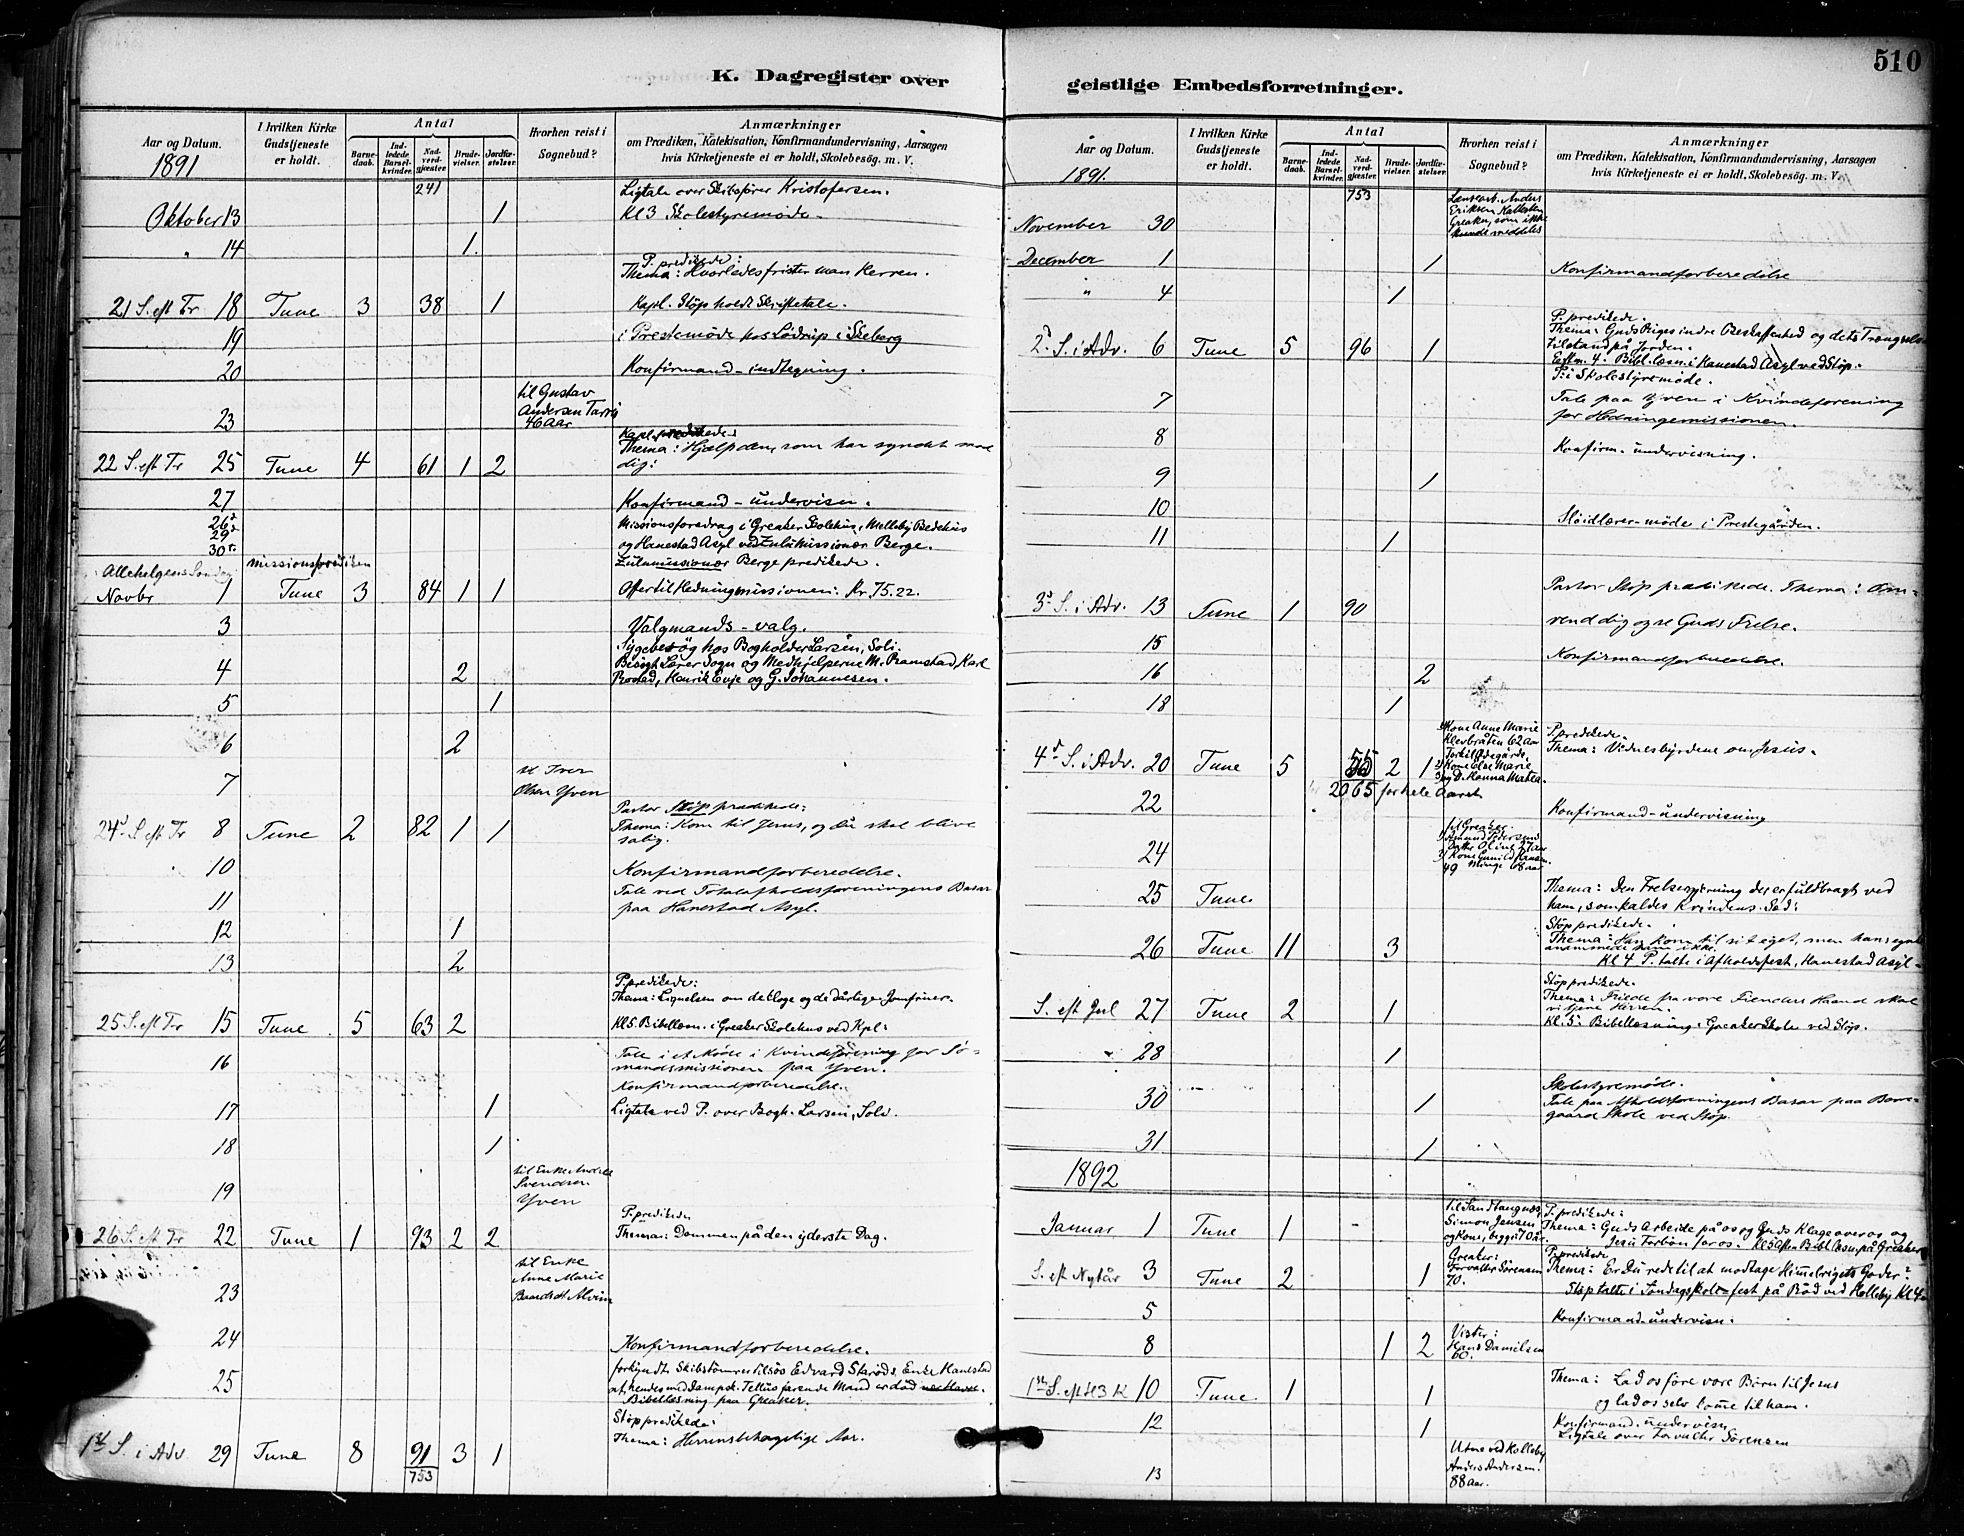 510
K. Dagregister over
geistlige Embedsforretninger.
Aar og Datum.
1891
I hvilken Kirke Gudstjeneste er holdt.
Antal
Barnedaab.
Indledede Barselkvinder.
Nadverdgjester.
Brudevielser.
Jordfæstelser.
Hvorhen reist i Sognebud?
Anmærkninger
om Prædiken, Katekisation, Konfirmandundervisning, Aarsagen
hvis Kirketjeneste ei er holdt, Skolebesøg. m. V.
241 Ligtale over Skibsfører Kristofersen.
Oktober 13 1 Kl 3 Skolestyremøde.
" 14 1.
P. predikede:
Thema: Hvorledes frister man Herren.
21 S. eft Tr 18 Tune 3 38 1 Kapl. Støp holdt Skriftetale.
19 i Prestemøde hos Lødrup i Skeberg
20 Konfirmand-indtegning.
til Gustav
Andersen
23 46 Aar
Kapl. predikede:
Thema: Hjælp dem, som har syndet mod
22 S. eft Tr 25 Tune 4 61 1 2 dig:
27 Konfirmand-undervisn.
26 Missionsforedrag i Greaker Skolehus, Melleby Bedehus
29 og Hanestad Asyl ved Zulumissionær Berge.
30 Zulumissionær Berge predikede.
Allehelgens Søndag missionsprediken
Novbr 1 Tune 3 84 1 1 Offer til Hedningmissionen: Kr 75.22.
3 Valgmands-valg.
Sygebesøg hos Bogholder Larsen, Soli.
4 2 Sogn og Medhjelperne M. Karl
Henrik Evje og G. Johannesen.
5 1
6 2
7 til Iver
Olsen Yven
Pastor Støp predikede:
24 S. eft Tr 8 Tune 2 82 1 1 Thema: Kom til Jesus, og du skal blive
salig.
10 Konfirmandforberedelse.
11 Tale ved Totalafholdsforeningens Basar
paa Hanestad Asyl.
12 1
13 2
P. predikede:
Thema: Lignelsen om de kloge og de dårlige Jomfruer.
25 S. eft Tr 15 Tune 5 63 2 Kl 5. Bibellæsn. i Greaker Skolehus ved Kpl:
16 Tale i et Møde i Kvindeforening for Sø-
mandsmissionen paa Yven.
Konfirmandforberedelse.
17 1 Ligtale ved P. over Bogh. Larsen, Soli.
18 1
til Enke
Svendsen
19 Yven
P. predikede
26 S. eft Tr 22 Tune 1 93 2 2 Thema: Dommen på den yderste Dag.
til Enke
Anne Marie
23 Alvim
24 Konfirmandforberedelse.
forkyndte Skibstømrer Edvard Enke Hanestad
25 at hendes med Dampsk. Tellus farende Mand er død
Bibellæsning paa Greaker.
Støp predikede:
1st S. i Adv 29 Tune 8 91 3 1 Thema: Herrens behagelige Aar.
753
Aar og Datum.
1891.
I hvilken Kirke Gudstjeneste er holdt.
Antal
Barnedaab.
Indledede Barselkvinder.
Nadverdgjester.
Brudevielser.
Jordfæstelser.
Hvorhen reist i Sognebud?
Anmærkninger
om Prædiken, Katekisation, Konfirmandundervisning, Aarsagen
hvis Kirketjeneste ei er holdt, Skolebesøg. m. V.
753 Anders
Eriksen
November 30 Greaker, som ikke
kunde meddeles
December 1 1 Konfirmandforberedelse
" 4 1
P. predikede.
Thema: Guds Riges indre Beskaffenhed og dets Trængsels
2 S. i Adv. 6 Tune 5 96 1 Tilstand på Jorden.
Eftm. 4. Bibl. læsn. i Hanestad Asyl ved Støp.
P. i Skolestyremøde.
7 Tale paa Yven i Kvindeforening
for Hedningemissionen.
8 Konfirm-undervisning.
9 1
10 Sløidlærer-møde i Prestegården.
11 1
Pastor Støp prædikede. Thema: Om-
3 S. i Adv. 13 Tune 1 90 vend dig og se Guds Frelse.
15 Konfirmandforberedelse.
16 2
18 1
Kone Anne Marie
Klevbråten 62 Aar
P. predikede.
Thema: Vidnesbyrdene om Jesus.
4 S. i Adv. 20 Tune 5 55 2 1 Kone Else Marie
og D. Hanna Mathea.
2065 for hele Aaret
22 Konfirmand-undervisning
til Greaker.
Datter Oline 27 Aar
24 Kone Gunild Hansen
Minge 68 aar
25 Tune Thema: Den Frelsesgjerning der er fuldbragt ved
ham, som kaldes Kvindens Sæd:
Støp predikede.
26 Tune 11 3 Thema: Han kom til sit eget, men hans egne
anammede ham ikke.
Kl 4 P. talte i Afholdsfest, Hanestad Asyl
Støp predikede.
Thema: Friede fra vore Fienders Haand skal
S. eft Jul 27 Tune 2 1 vi tjene Herren.
Kl. 5: Bibellæsning i Greaker Skole ved Støp.
" 28 1
Skolestyremøde.
30 1 Tale paa Afholdsforeningens Basar paa Borre-
gaard Skole ved Støp.
31 1
1892
til Sandtangen,
Simon Jensen
og Kone, begge 70 år.
P. predikede:
Januar 1 Tune 1 Thema: Guds Arbeide på os og Guds Klage over os og
Jesu Forbøn for os. Kl 5 Eftm Bibl. læsn. på Greaker
Greaker: P. predikede
S. eft Nytår 3 Tune 2 1 Forvalter Sørensen 70. Thema: Er Du rede til at modtage Himmelrigets Goder?
Støp talte i Søndagskolefest på Råd ved Kolleby Kl 4
5 Konfirmand-undervisn.
8 1 2 Vister:
Hans Danielsen
60.
1st S. eft H3K 10 Tune 1 1 Thema: Lad os føre vore Børn til Jesus
og lad os selv komme til ham.
12 1 Konfirmand-undervisn.
Ligtale over Forvalter Sørensen
Utne ved Kolleby
13 Anders Andersen.
88 aar.